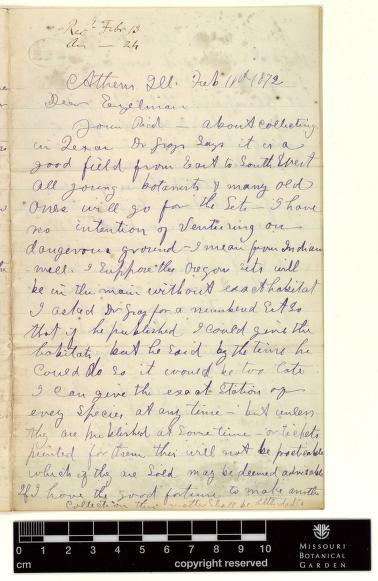 Recd Feb 13
An — 24
Athens Ill. Feb 11th 1872
Dear Engelman
Yours Recd — about collecting
in Texas Dr Gray Says it is a
good field from East to South West
all young botanists & many old
ones will go for the Sets — I have
no intention of Venturing on
dangerous ground — I mean from Indians
well. I suppose the Oregon sets will
be in the main without exact habitat
I asked Dr Gray for a numbered Set So
that if he published I could give the
habitats, but he said by the time he
could do so it would be too late.
I can give the exact Station of
every Species at any time — but unless
they are published at Sometime or tickets
printed for them this will not be practicable
which if the are Sold may be deemed advisable
If I have the good fortune to make another
Collection this matter shall be
0 1 2 3 4 5 6 7 8 9 10
cm
copyright reserved
MISSOURI
BOTANICAL
GARDEN